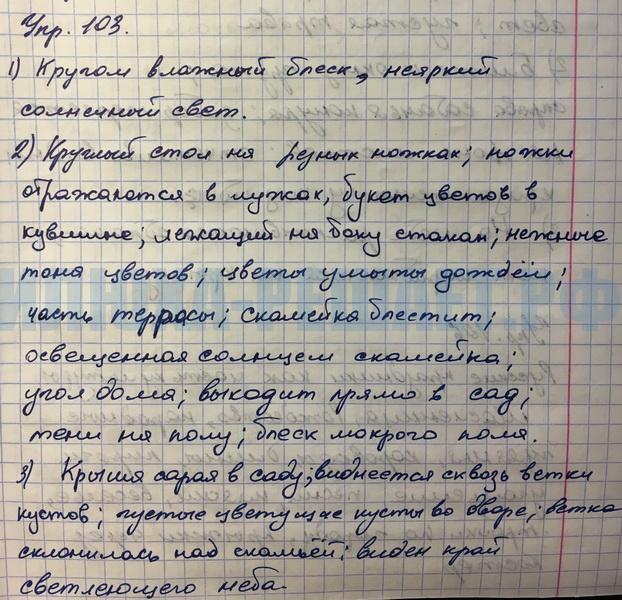 Упр. 103.
1) Кругом влажный блеск, неяркий
солнечный свет.
2) Круглый стол на резных ножках; ножки
отражаются в лужах, букет цветов в
кувшине; лежащий на боку стакан; нежные
тона цветов; цветы умыты дождём;
часть террасы; скамейка блестит;
освещенная солнцем скамейка;
угол дома; выходит прямо в сад;
тени на полу; блеск мокрого пола.
3) Крыша сарая в саду; виднеется сквозь ветки
кустов; густые цветущие кусты во дворе; ветка
склонилась над скамьёй; виден край
светлеющего неба.